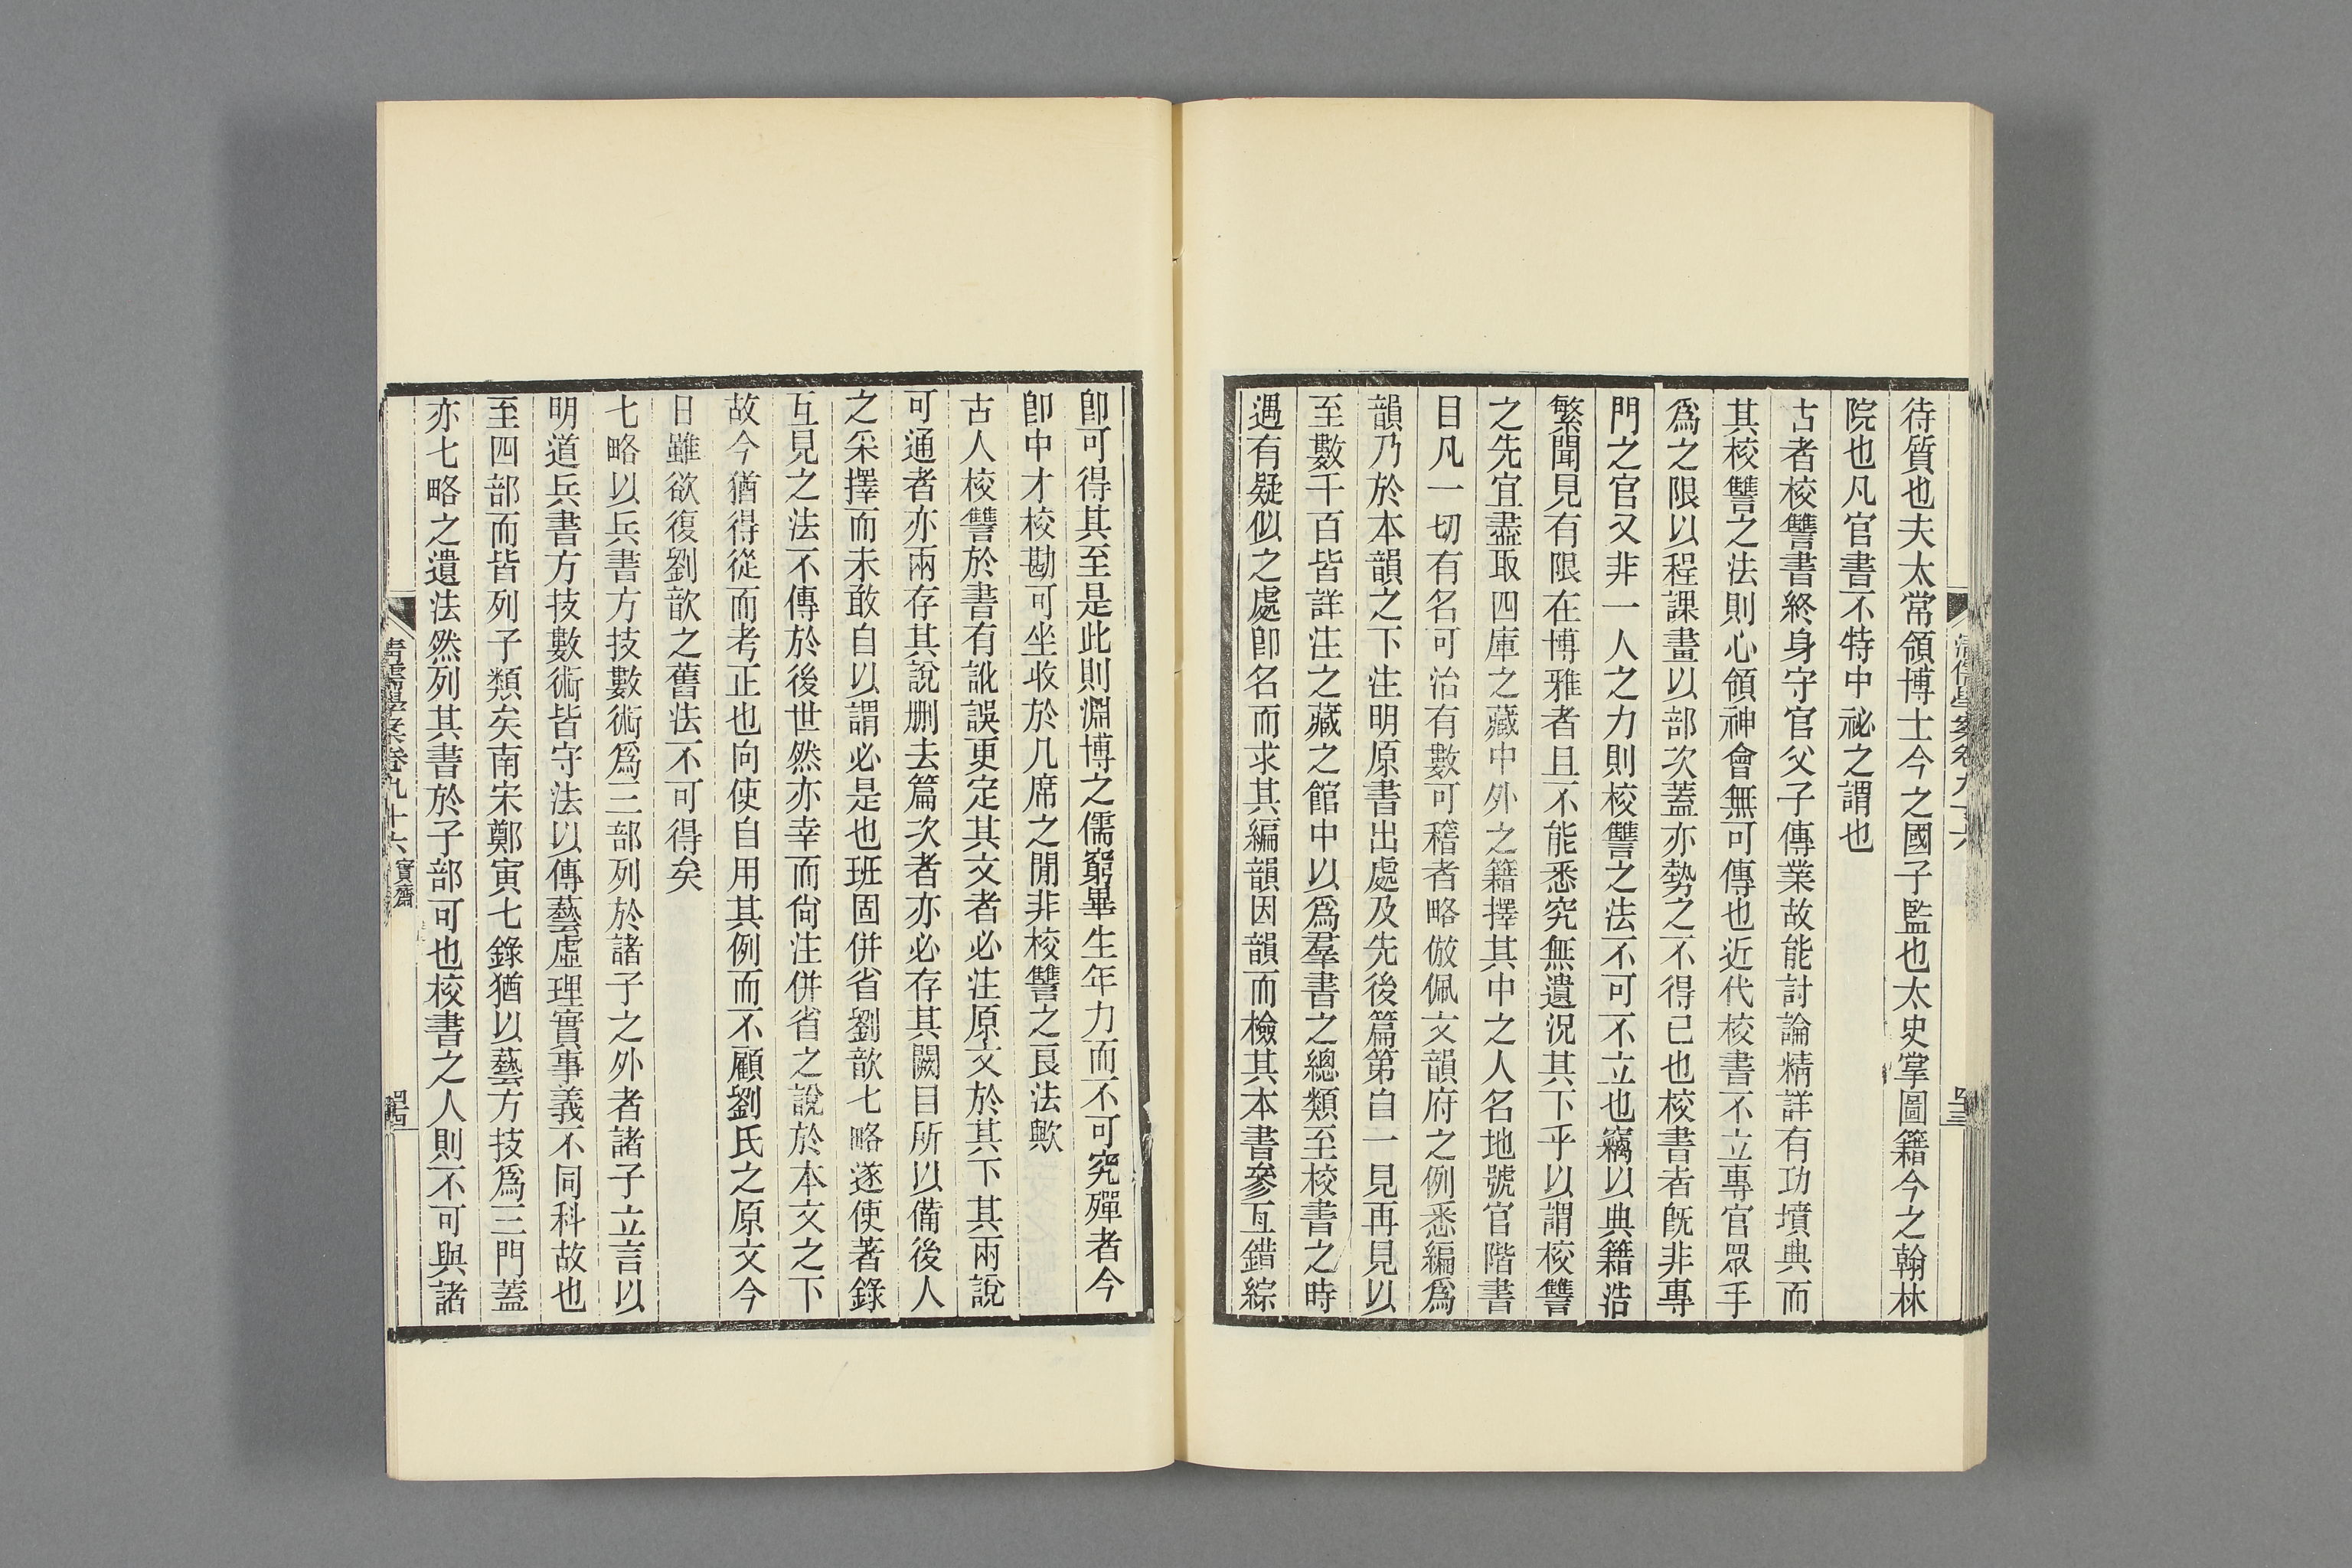 待質也夫太常領博士今之國子監也太史掌圖籍今之翰林
院也凡官書不特中祕之謂也
古者校讐書終身守官父子傳業故能討論精詳有功墳典而
其校讐之法則心領神會無可傳也近代校書不立專官眾手
爲之限以程課畫以部次蓋亦勢之不得已也校書者旣非專
門之官又非一人之力則校讐之法不可不立也竊以典籍浩
繁聞見有限在博雅者且不能悉究無遺況其下乎以謂校讐
之先宜盡取四庫之藏中外之籍擇其中之人名地號官階書
目凡一切有名可治有數可稽者略倣佩文韻府之例悉編爲
韻乃於本韻之下注明原書出處及先後篇第自一見再見以
至數千百皆詳注之藏之館中以爲羣書之總類至校書之時
遇有疑似之處卽名而求其編韻因韻而檢其本書參互錯綜
卽可得其至是此則淵博之儒窮畢生年力而不可究殫者今
卽中才校勘可坐收於几席之閒非校讐之良法歟
古人校讐於書有訛誤更定其文者必注原文於其下其兩說
可通者亦兩存其說删去篇次者亦必存其闕目所以備後人
之采擇而未敢自以謂必是也班固併省劉歆七略遂使著錄
互見之法不傳於後世然亦幸而尙注併省之說於本文之下
故今猶得從而考正也向使自用其例而不顧劉氏之原文今
日雖欲復劉歆之舊法不可得矣
七略以兵書方技數術爲三部列於諸子之外者諸子立言以
明道兵書方技數術皆守法以傳藝虛理實事義不同科故也
至四部而皆列子類矣南宋鄭寅七錄猶以藝方技爲三門蓋
亦七略之遺法然列其書於子部可也校書之人則不可與諸
清儒學案卷九十六 實齋